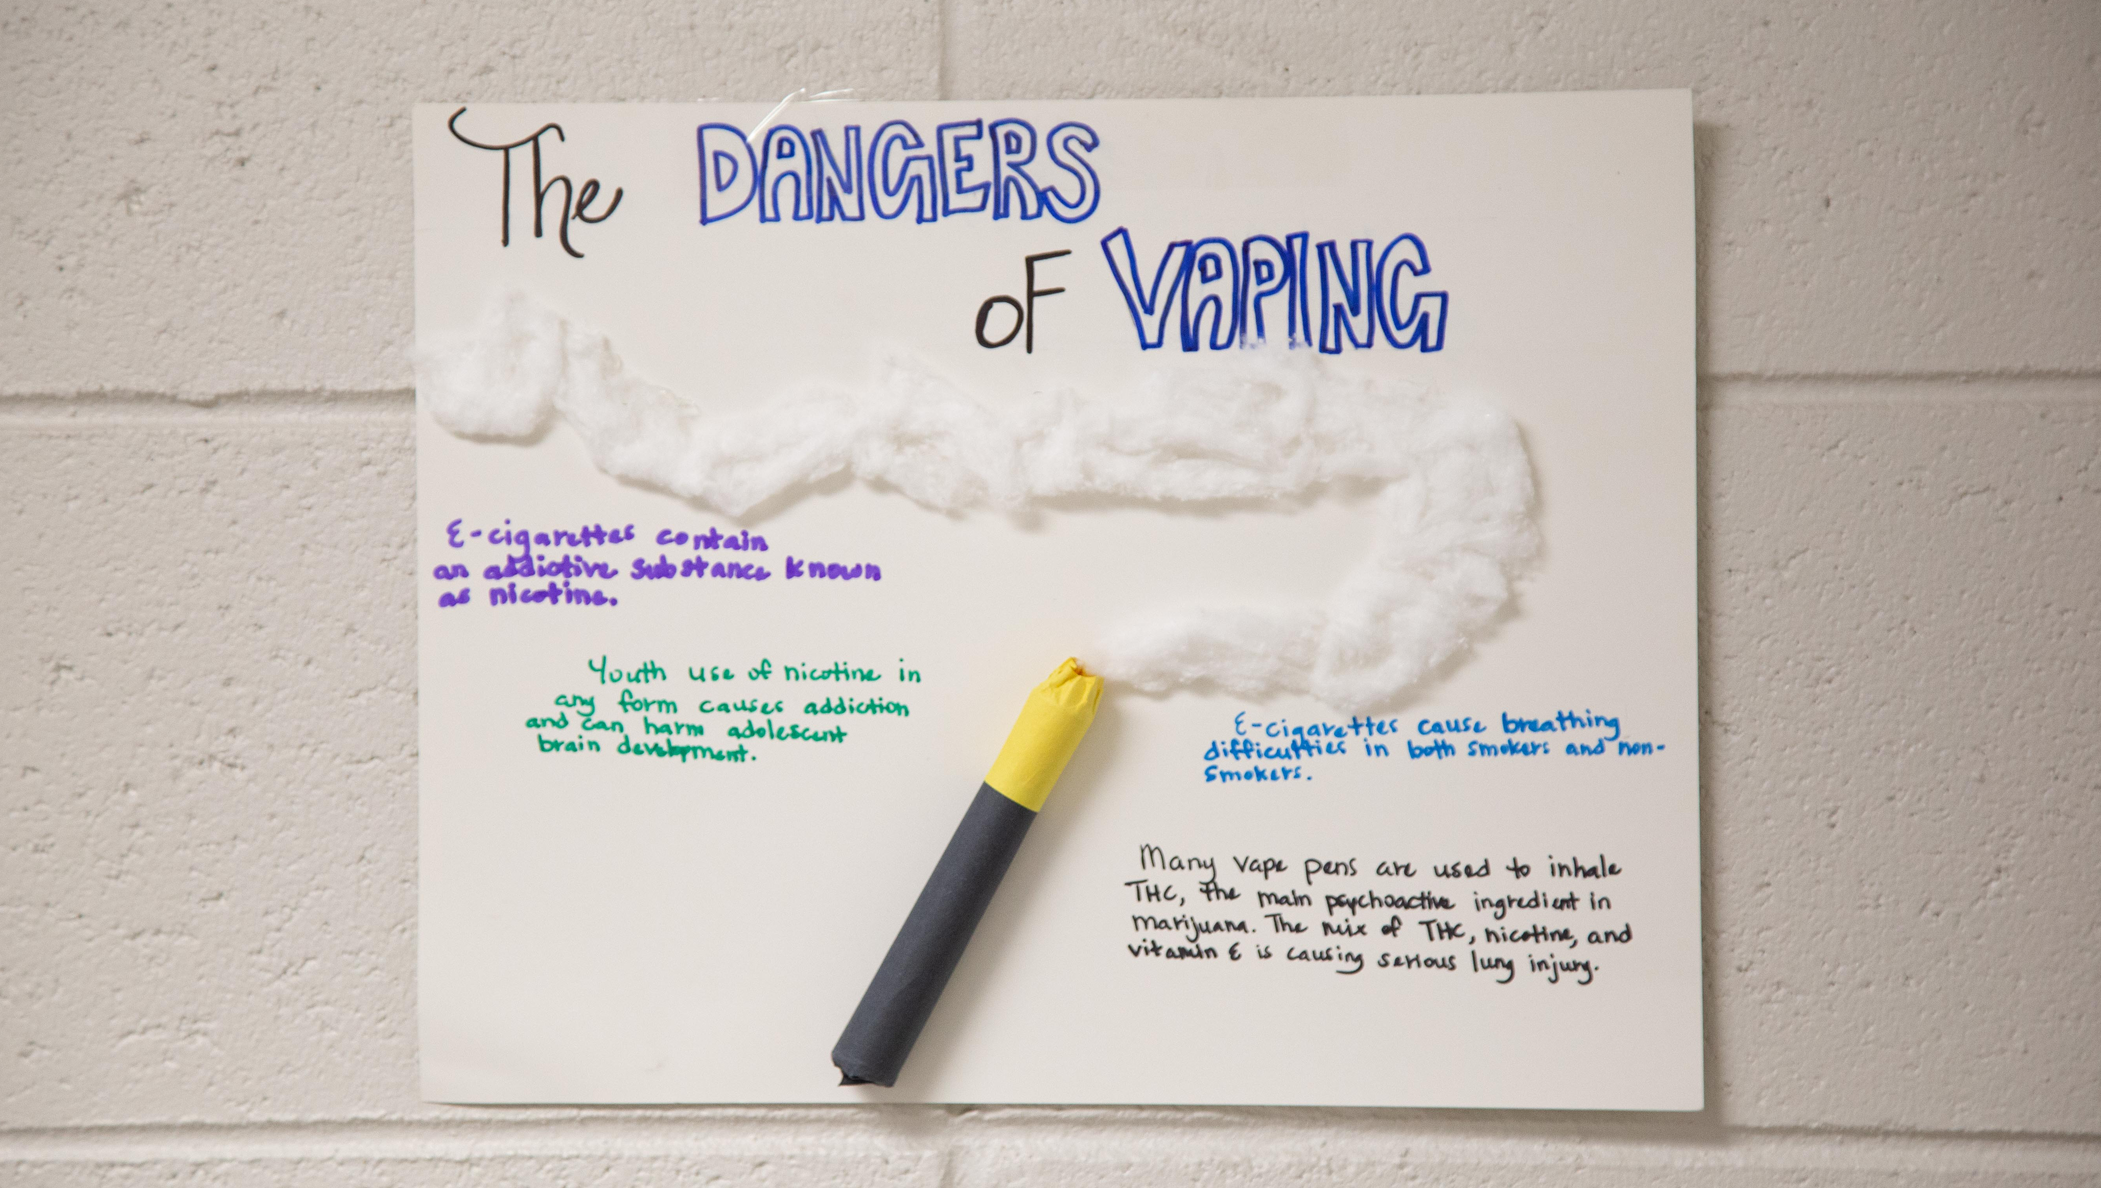 The DANGERS
oF VAPING
E-cigarettes contain
an addictive substance known
as nicotine.
Youth use of nicotine in
any form causes addiction
and can harm adolescent
brain development.
E-cigarettes cause breathing
difficulties in both smokers and non-
smokers.
Many vape pens are used to inhale
THC, the main psychoactive ingredient in
marijuana. The mix of THC, nicotine, and
vitamin E is causing serious lung injury.